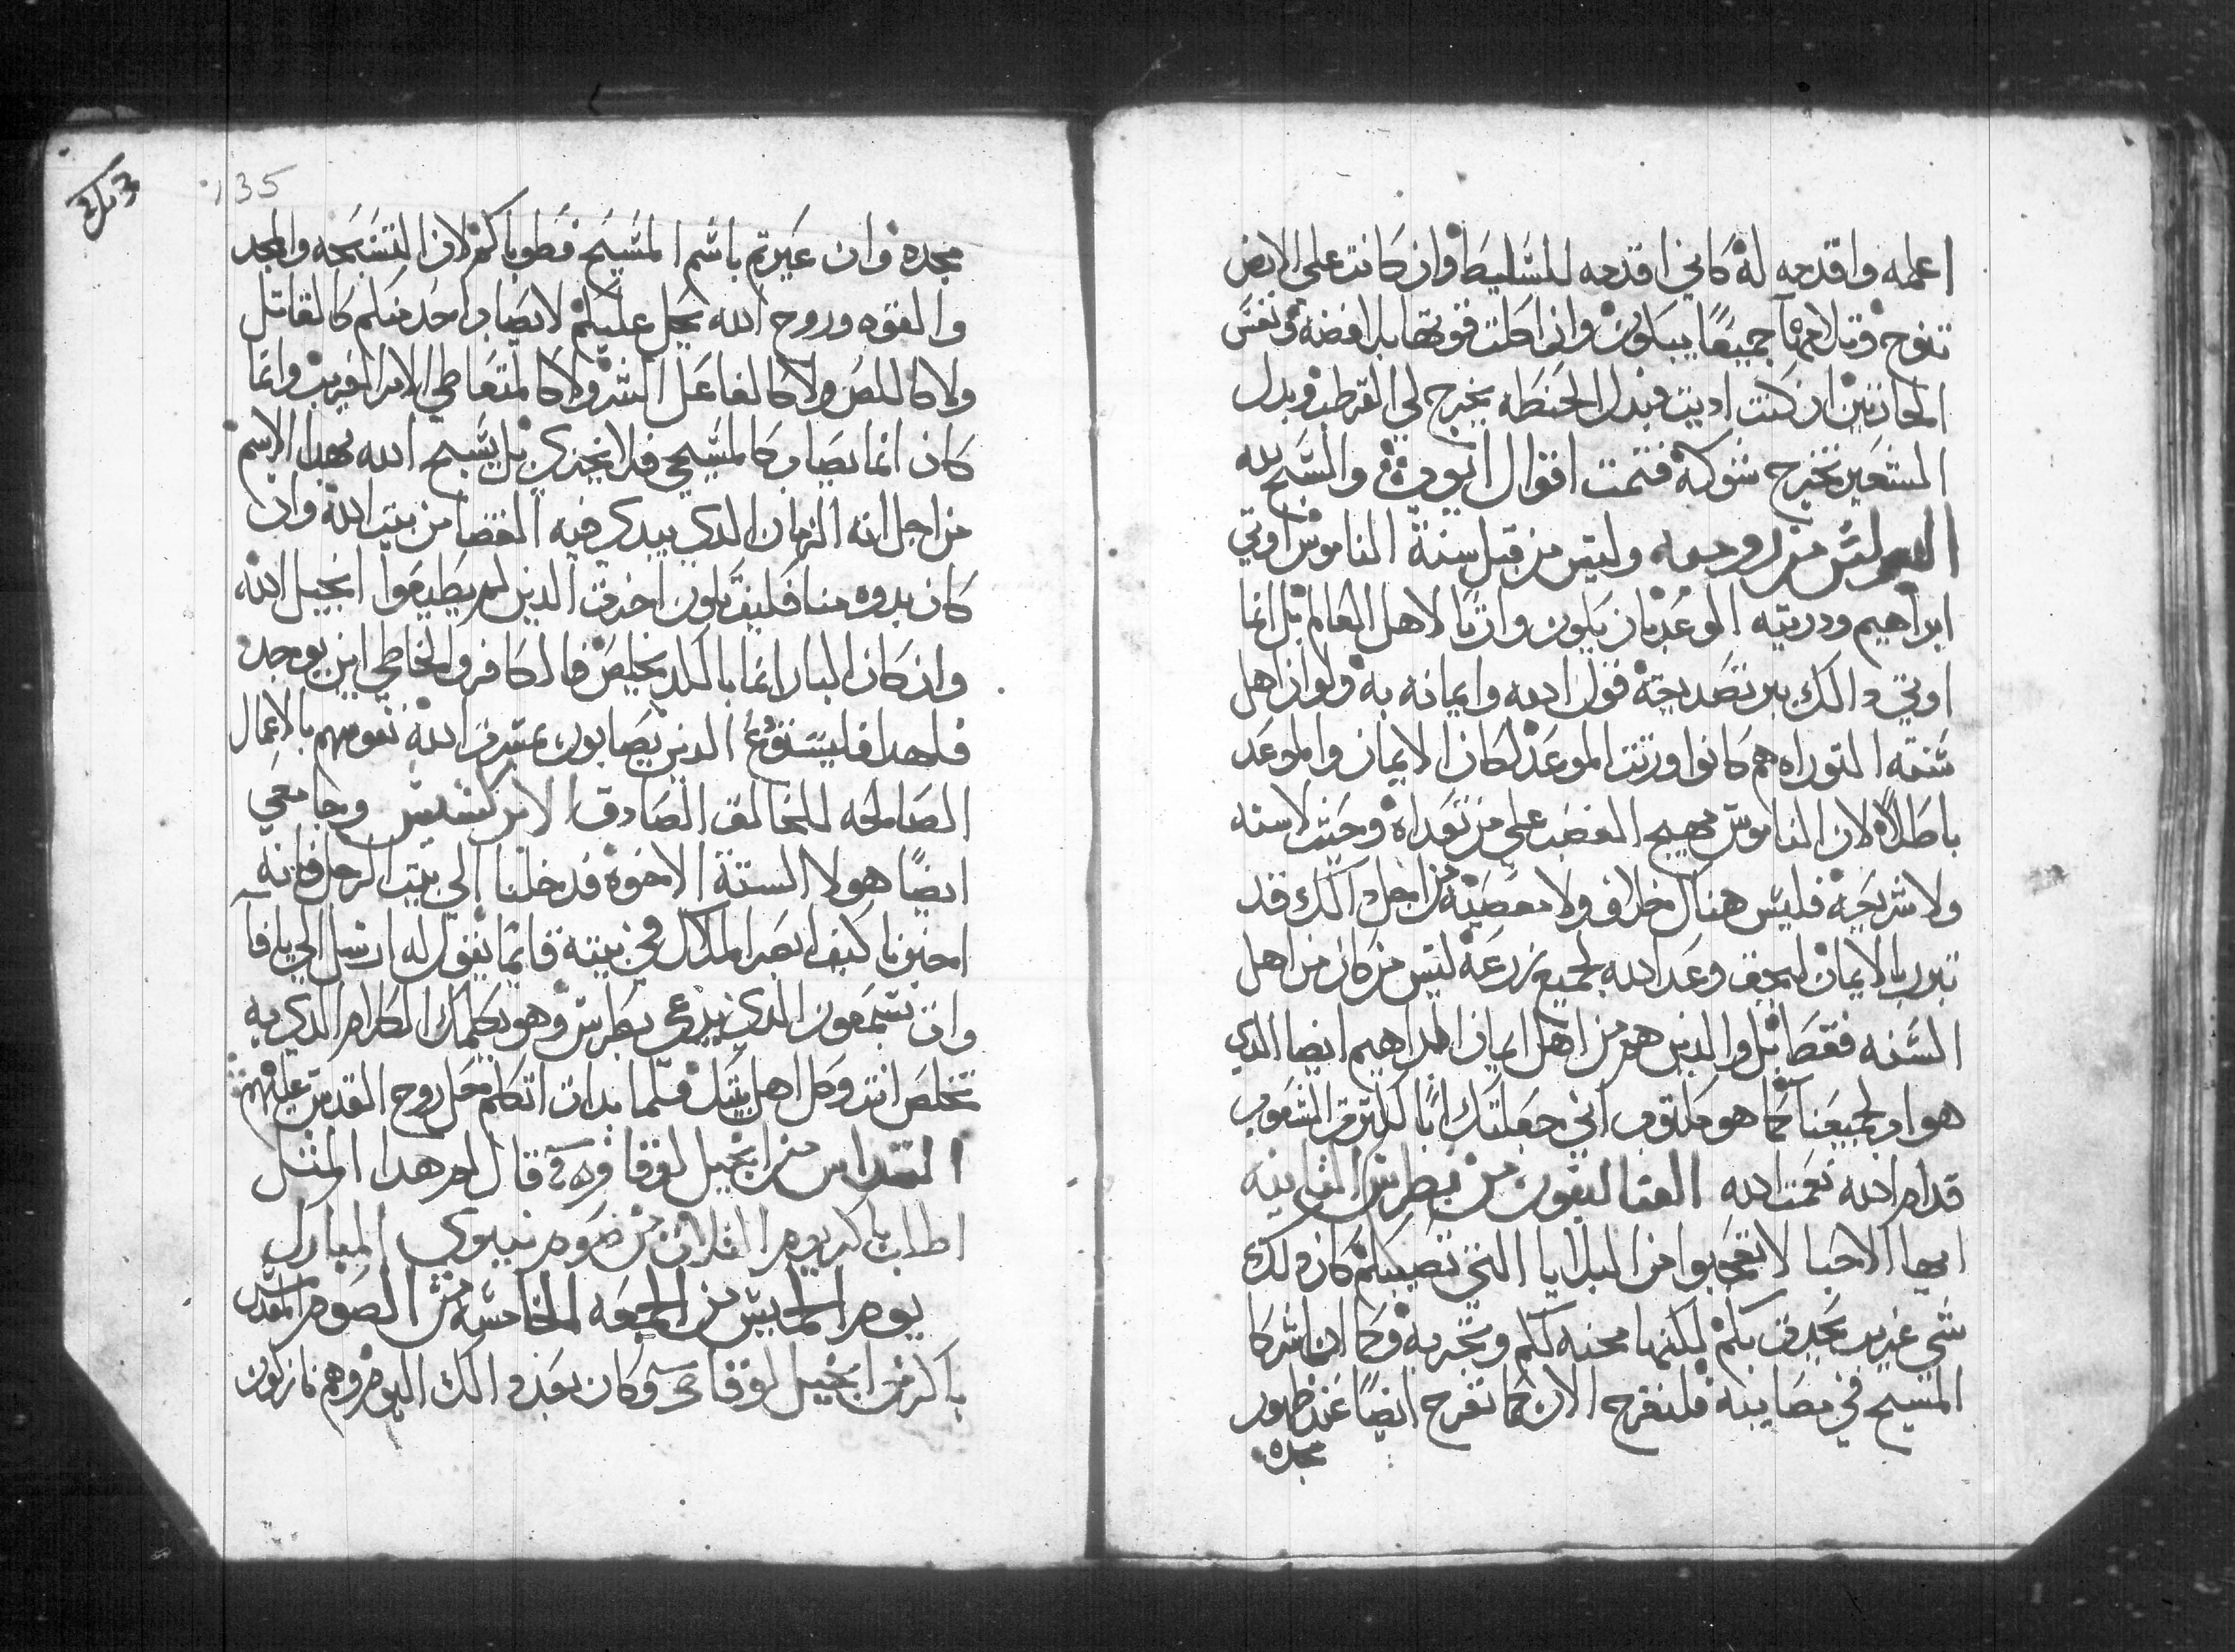 اعلمه واقدمه له كاني اقدمه للسليط وان كانت علي الارض
تنوح وتلامها جميعًا يبكون وان اكلت قوتها بلا فضه ونفس
الحارتين ان كنت اديت فبدل الحنطه يخرج لي القرطب وبدل
الشعير تخرج شوكه فتمت اقوال ايوب والسبح لله
البولس من روميه وليس من قبل سنة الناموس اوتي
ابراهيم ودريته الوعد بان يكون وارثا لاهل العالم بل انما
اوتي دالك ببر تصديقه قول الله وايمانه به ولو ان اهل
سنة التوراه هم كانوا ورثت الموعد لكان الايمان والموعد
باطلا لان الناموس مهيج الغضب علي من تعداه وحيث لا سنه
ولا شريعه فليس هناك خلاف ولا معصيه من اجل دالك قد
تبرر بالايمان ليحق وعد الله لجميع زرعه ليس من كان من اهل
السنه فقط بل والدين هم من اهل ايمان ابراهيم ايضا الدي
هو اب لجميعنا كما هو مكتوب اني جعلتك ابًا لكثير من الشعوب
قدام الله نعمت الله القتاليقون من بطرس الثانيه
ايها الاحبا لا تعجبوا من البلايا التي تصيبكم كان دلك
شي غريب يحدث بكم لكنها محنه لكم وتجربه وكما ان اشركا
المسيح في مصايبه فلنفرح الان كما نفرح ايضًا عند ظهور
مجده
135
مجده وان عيرتم باسم المسيح فطوباكم لان التسبحه والمجد
والقوه وروح الله يحل عليكم لا يصاب احد منكم كالقاتل
ولا كاللص ولا كالفاعل الشر ولا كالمتعاطي الامر الغريب وانما
كان انما يصاب كالمسيحي فلا يخزي بل يسبح الله بهدا الاسم
من اجل انه الزمان الدي يبدي فيه القضا من بيت الله وان
كان بدوه منا فكيف يكون اخرت الدين لم يطيعوا انجيل الله
وان كان البار انما بالكد يخلص فالكافر والخاطي اين يوجد
فلهدا فليستودع الدين يصابون بمسرة الله نفوسهم بالاعمال
الصالحه للخالق الصادق الابركسيس وجا معي
ايضًا هولا الستة الاخوة فدخلنا الي بيت الرجل فانه
اخبرنا كيف ابصر الملاك في بيته قايمًا يقول له ارسل الي يافا
وات بسمعون الدي يدعي بطرس وهو يكلمك الكلام الدي به
تخلص انت وكل اهل بيتك فلما بدات اتكلم حل روح القدس عليهم
القداس من انجيل لوقا قال لهم هدا المثل
اطلب باكر يوم الثلاث من صوم نينوي المبارك
يوم الخميس من الجمعه الخامسه من الصوم المقدس
باكر من انجيل لوقا وكان بعد دالك اليوم وهم نازلون